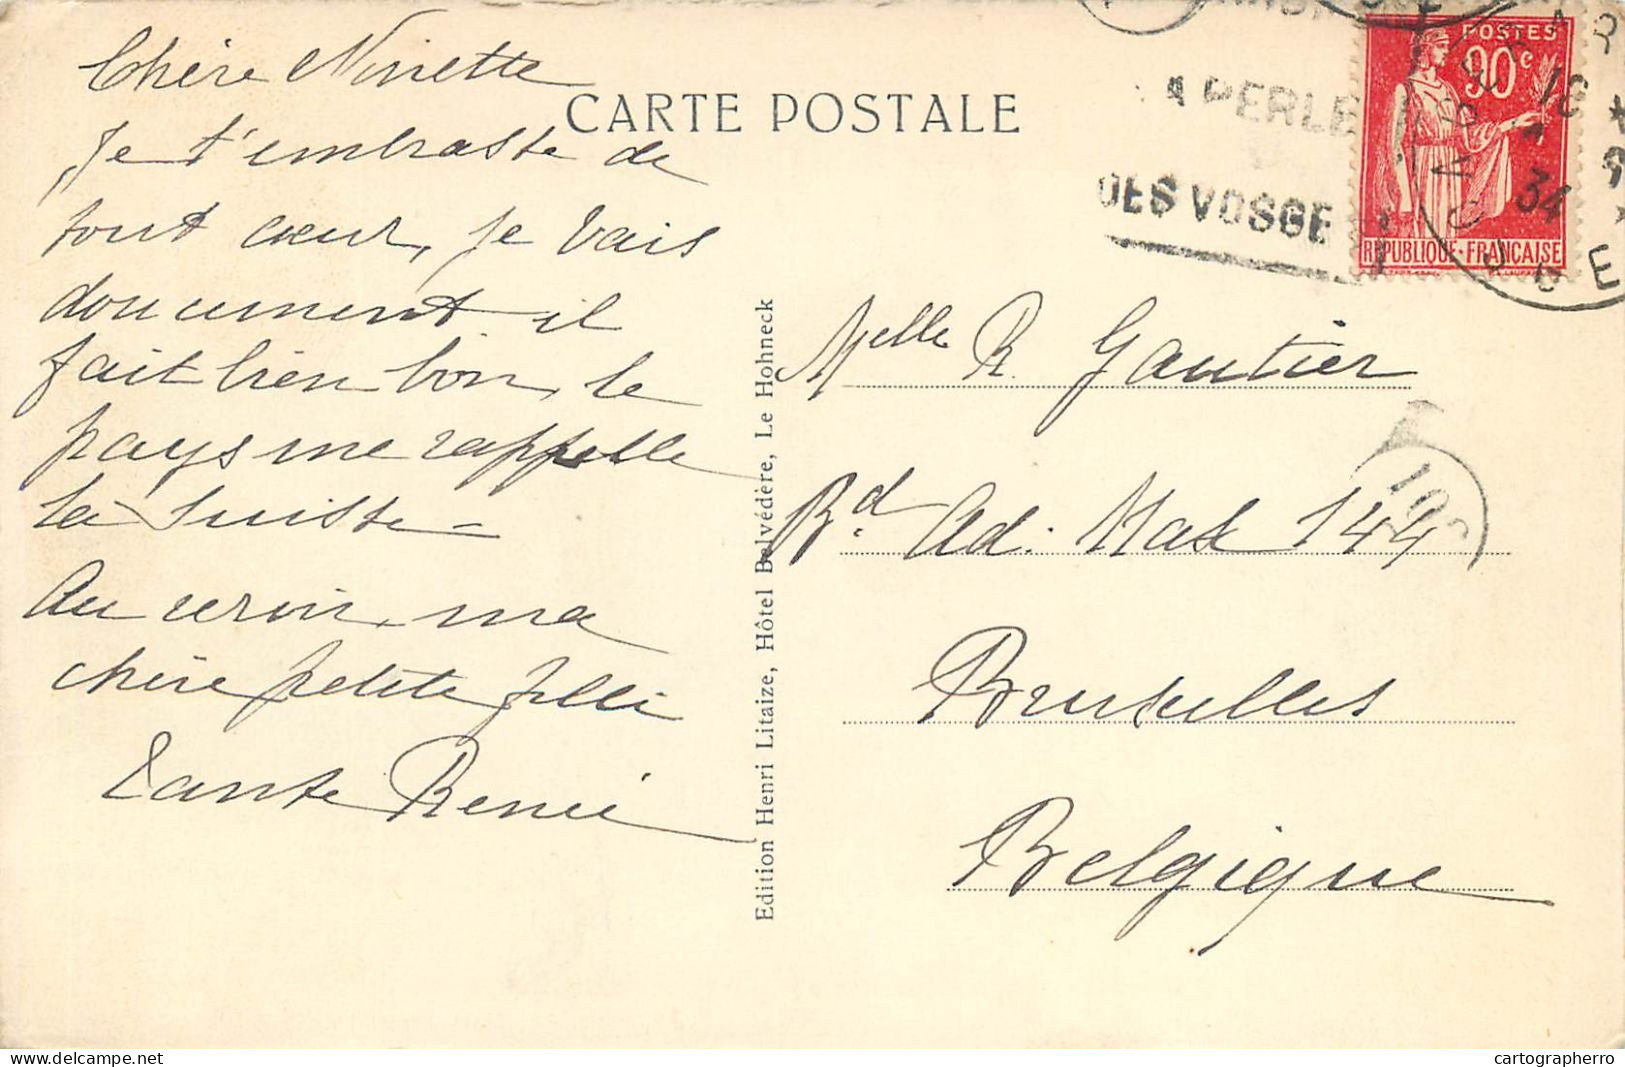 Chère Ninette
CARTE POSTALE
Je t'embrasse de
tout cœur, je vais
doucement il
fait bien bon, le
pays me rappelle
la Suisse
Au revoir, ma
chère petite fille
Tante Renée
Edition Henri Litaize, Hôtel Belvédère, Le Hohneck
A PERLE
DES VOSGE
POSTES
90c
REPUBLIQUE-FRANÇAISE
34
Melle R. Gautier
Bd. Ad. Max 144
Bruxelles
Belgique
cartographerro